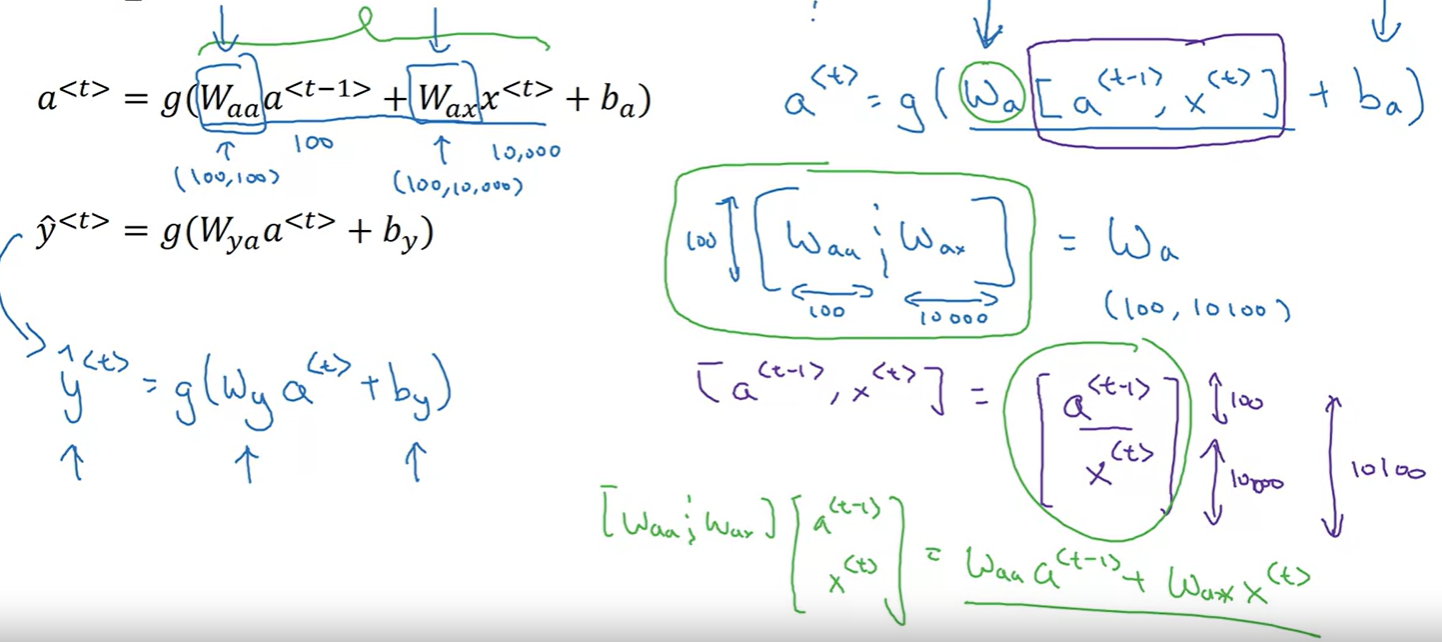 a<t> = g(Waa a<t−1> + Wax x<t> + ba)
100
10,000
(100,100)
(100,10,000)
ŷ<t> = g(Wya a<t> + by)
ŷ<t> = g(Wy a<t> + by)
a<t> = g(Wa [a<t-1>, x<t>] + ba)
100 [Waa ; Wax] = Wa
100
10000
(100, 10100)
[a<t-1>, x<t>] = [a<t-1>
x<t>]
100
10000
10100
[Waa ; Wax] [a<t-1>
x<t>] = Waa a<t-1> + Wax x<t>